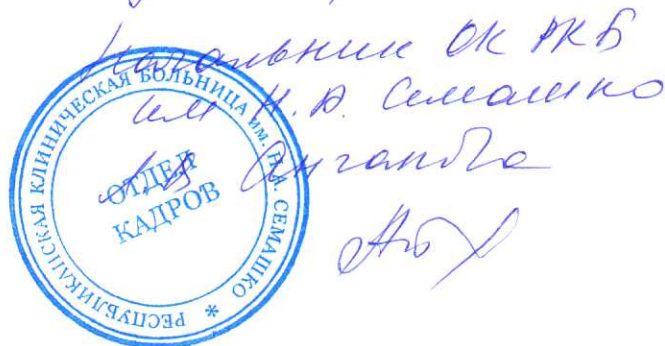 Начальник ОК РКБ
им Н.А. Семашко
А.В
РЕСПУБЛИКАНСКАЯ КЛИНИЧЕСКАЯ БОЛЬНИЦА им. Н.А. СЕМАШКО *
ОТДЕЛ
КАДРОВ